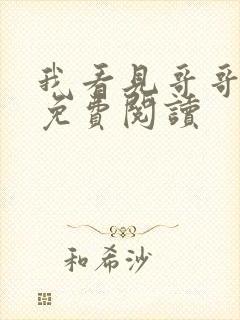 我看見哥哥
免費閱讀
和希沙